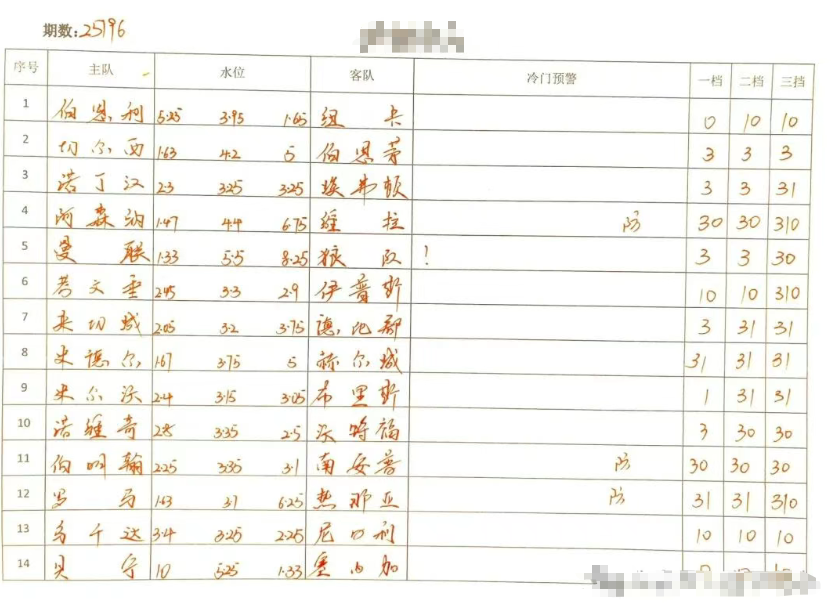 期数:25196
序号 主队 水位 客队 冷门预警 一档 二档 三挡
1 伯恩利 5.25 3.95 1.65 纽卡 0 10 10
2 切尔西 1.63 4.2 5 伯恩茅 3 3 3
3 诺丁汉 2.3 3.25 3.25 埃弗顿 3 3 31
4 阿森纳 1.47 4.4 6.75 维拉 防 30 30 310
5 曼联 1.33 5.5 8.25 狼队 ! 3 3 30
6 考文垂 2.45 3.3 2.9 伊普斯 10 10 310
7 米切城 2.05 3.2 3.75 德比郡 3 31 31
8 史德尔 1.67 3.75 5 赫尔城 31 31 31
9 米尔沃 2.4 3.15 3.05 布里斯 1 31 31
10 诺维奇 2.8 3.35 2.5 沃特福 3 30 30
11 伯明翰 2.25 3.35 3.1 南安普 防 30 30 30
12 罗马 1.63 3.1 6.25 热那亚 防 31 31 310
13 乌干达 3.4 3.25 2.25 尼日利 10 10 10
14 贝宁 10 5.25 1.33 塞内加